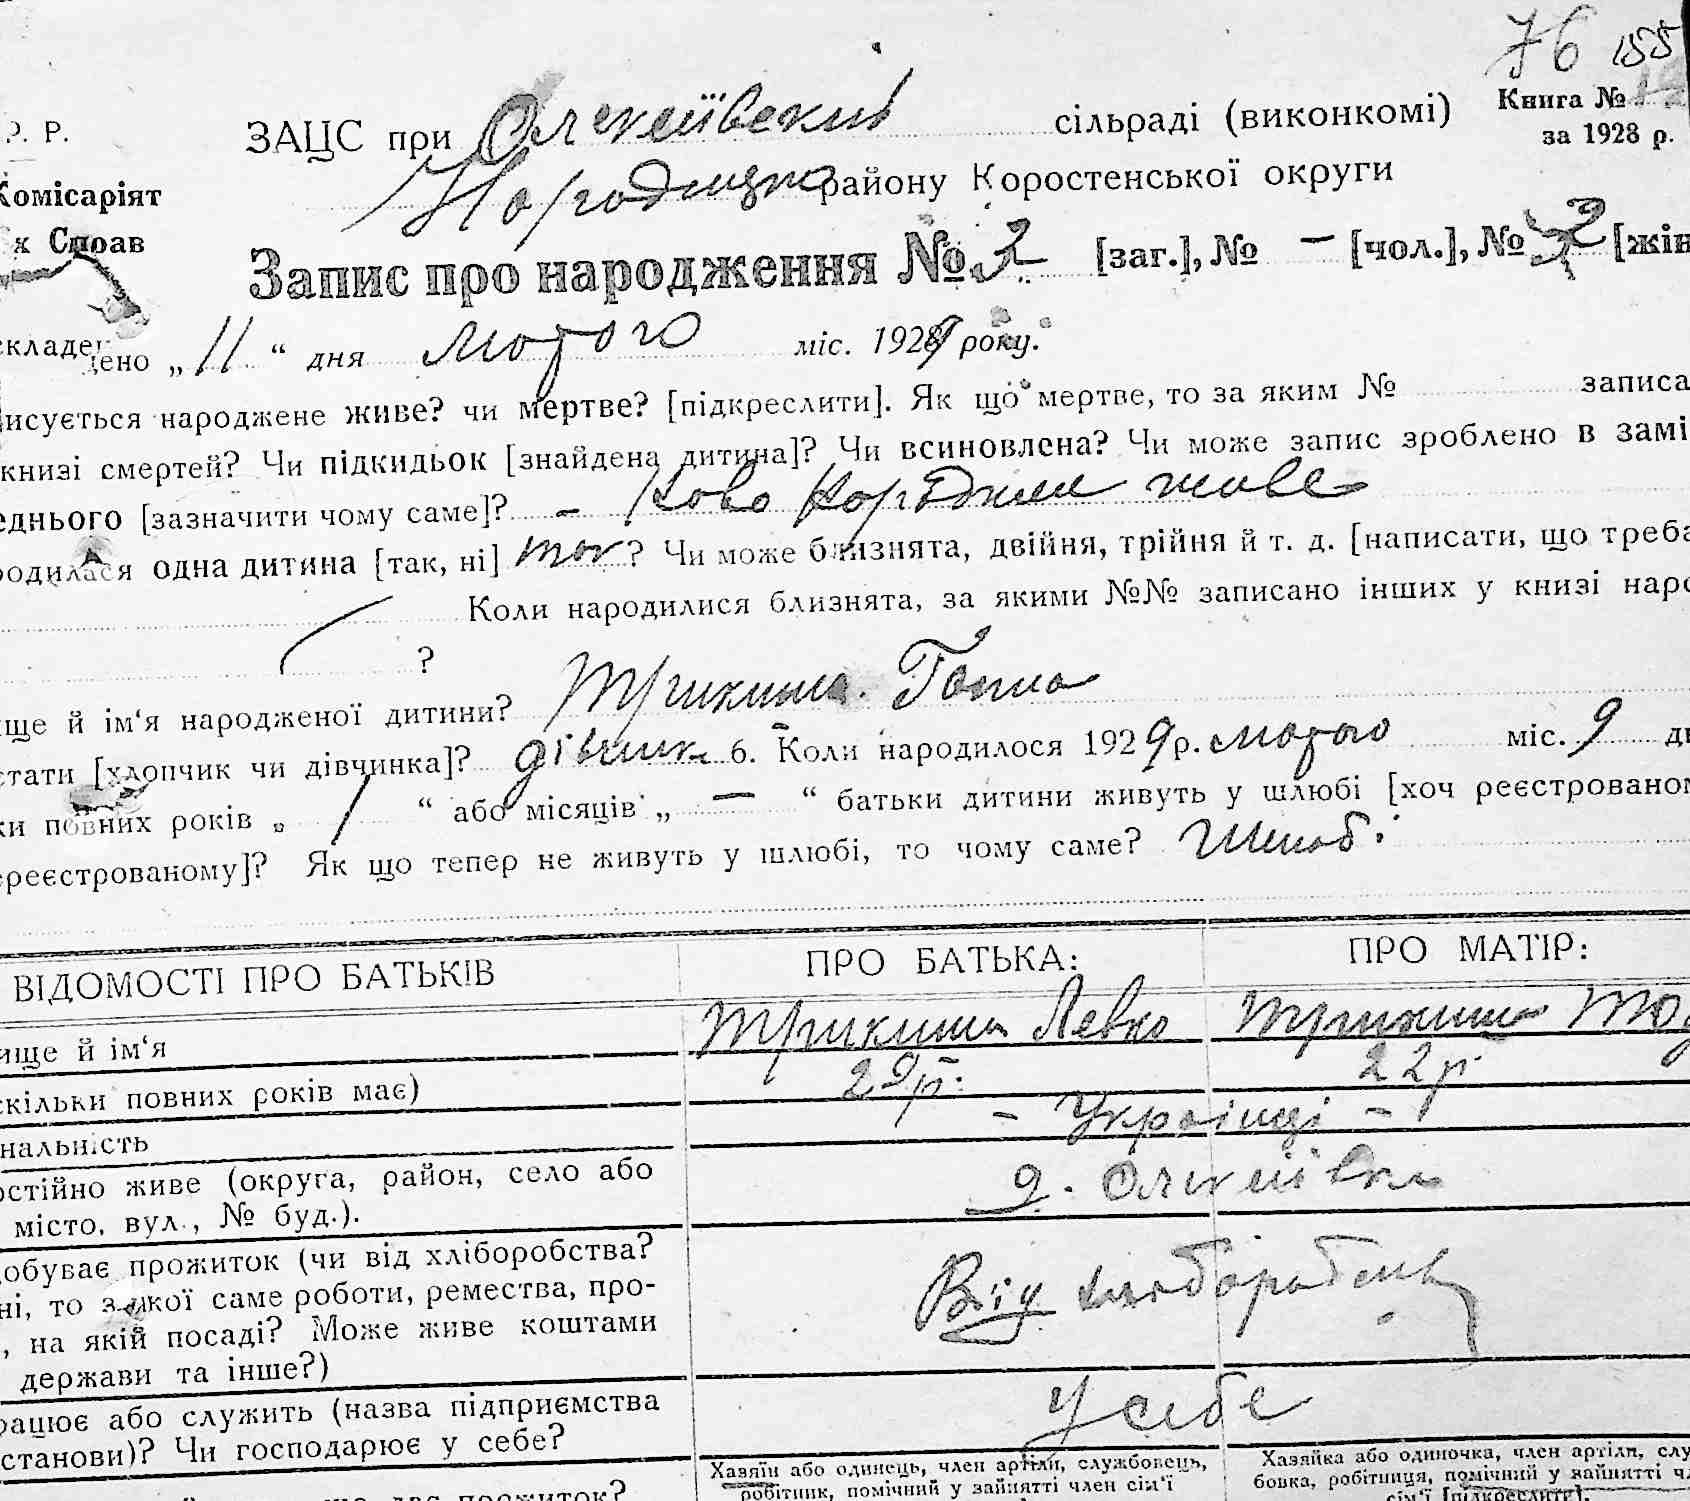 76 155
Книга №
за 1928 р.
Р. Р.
ЗАЦС при Олексіївскій сільраді (виконкомі)
Народицького району Коростенської округи
Комісаріят
х Справ
Запис про народження № 2 [заг.], № — [чол.], № 2 [жін
складено „11“ дня лютого міс. 1929 року.
исується народжене живе? чи мертве? [підкреслити]. Як що мертве, то за яким № записа
книзі смертей? Чи підкидьок [знайдена дитина]? Чи всиновлена? Чи може запис зроблено в замі
еднього [зазначити чому саме]? — живе
родилася одна дитина [так, ні] так? Чи може близнята, двійня, трійня й т. д. [написати, що треба
Коли народилися близнята, за якими №№ записано інших у книзі наро
?
ище й ім‘я народженої дитини? Трикиша Ганна
стати [хлопчик чи дівчинка]? дівчинк 6. Коли народилося 1929 р. лютого міс. 9 дн
ки повних років „ 1 “ або місяців „ — “ батьки дитини живуть у шлюбі [хоч реєстрованом
ереєстрованому]? Як що тепер не живуть у шлюбі, то чому саме? Шлюбі
ВІДОМОСТІ ПРО БАТЬКІВ ПРО БАТЬКА: ПРО МАТІР:
ище й ім‘я Трикиша Левко Трикиша
скільки повних років має) 29 р. 22 р.
нальність — Українці —
остійно живе (округа, район, село або
місто, вул., № буд.).
добуває прожиток (чи від хліборобства?
ні, то з якої саме роботи, ремества, про-
, на якій посаді? Може живе коштами
держави та інше?) Від
рацює або служить (назва підприємства
станови)? Чи господарює у себе? У себе
Хазяїн або одинець, член артіли, службовець,
робітник, помічний у зайнятті член сім‘ї
Хазяйка або одиночка, член артіли, слу
бовка, робітниця, помічний у зайнятті чл
сім‘ї [підкреслити].